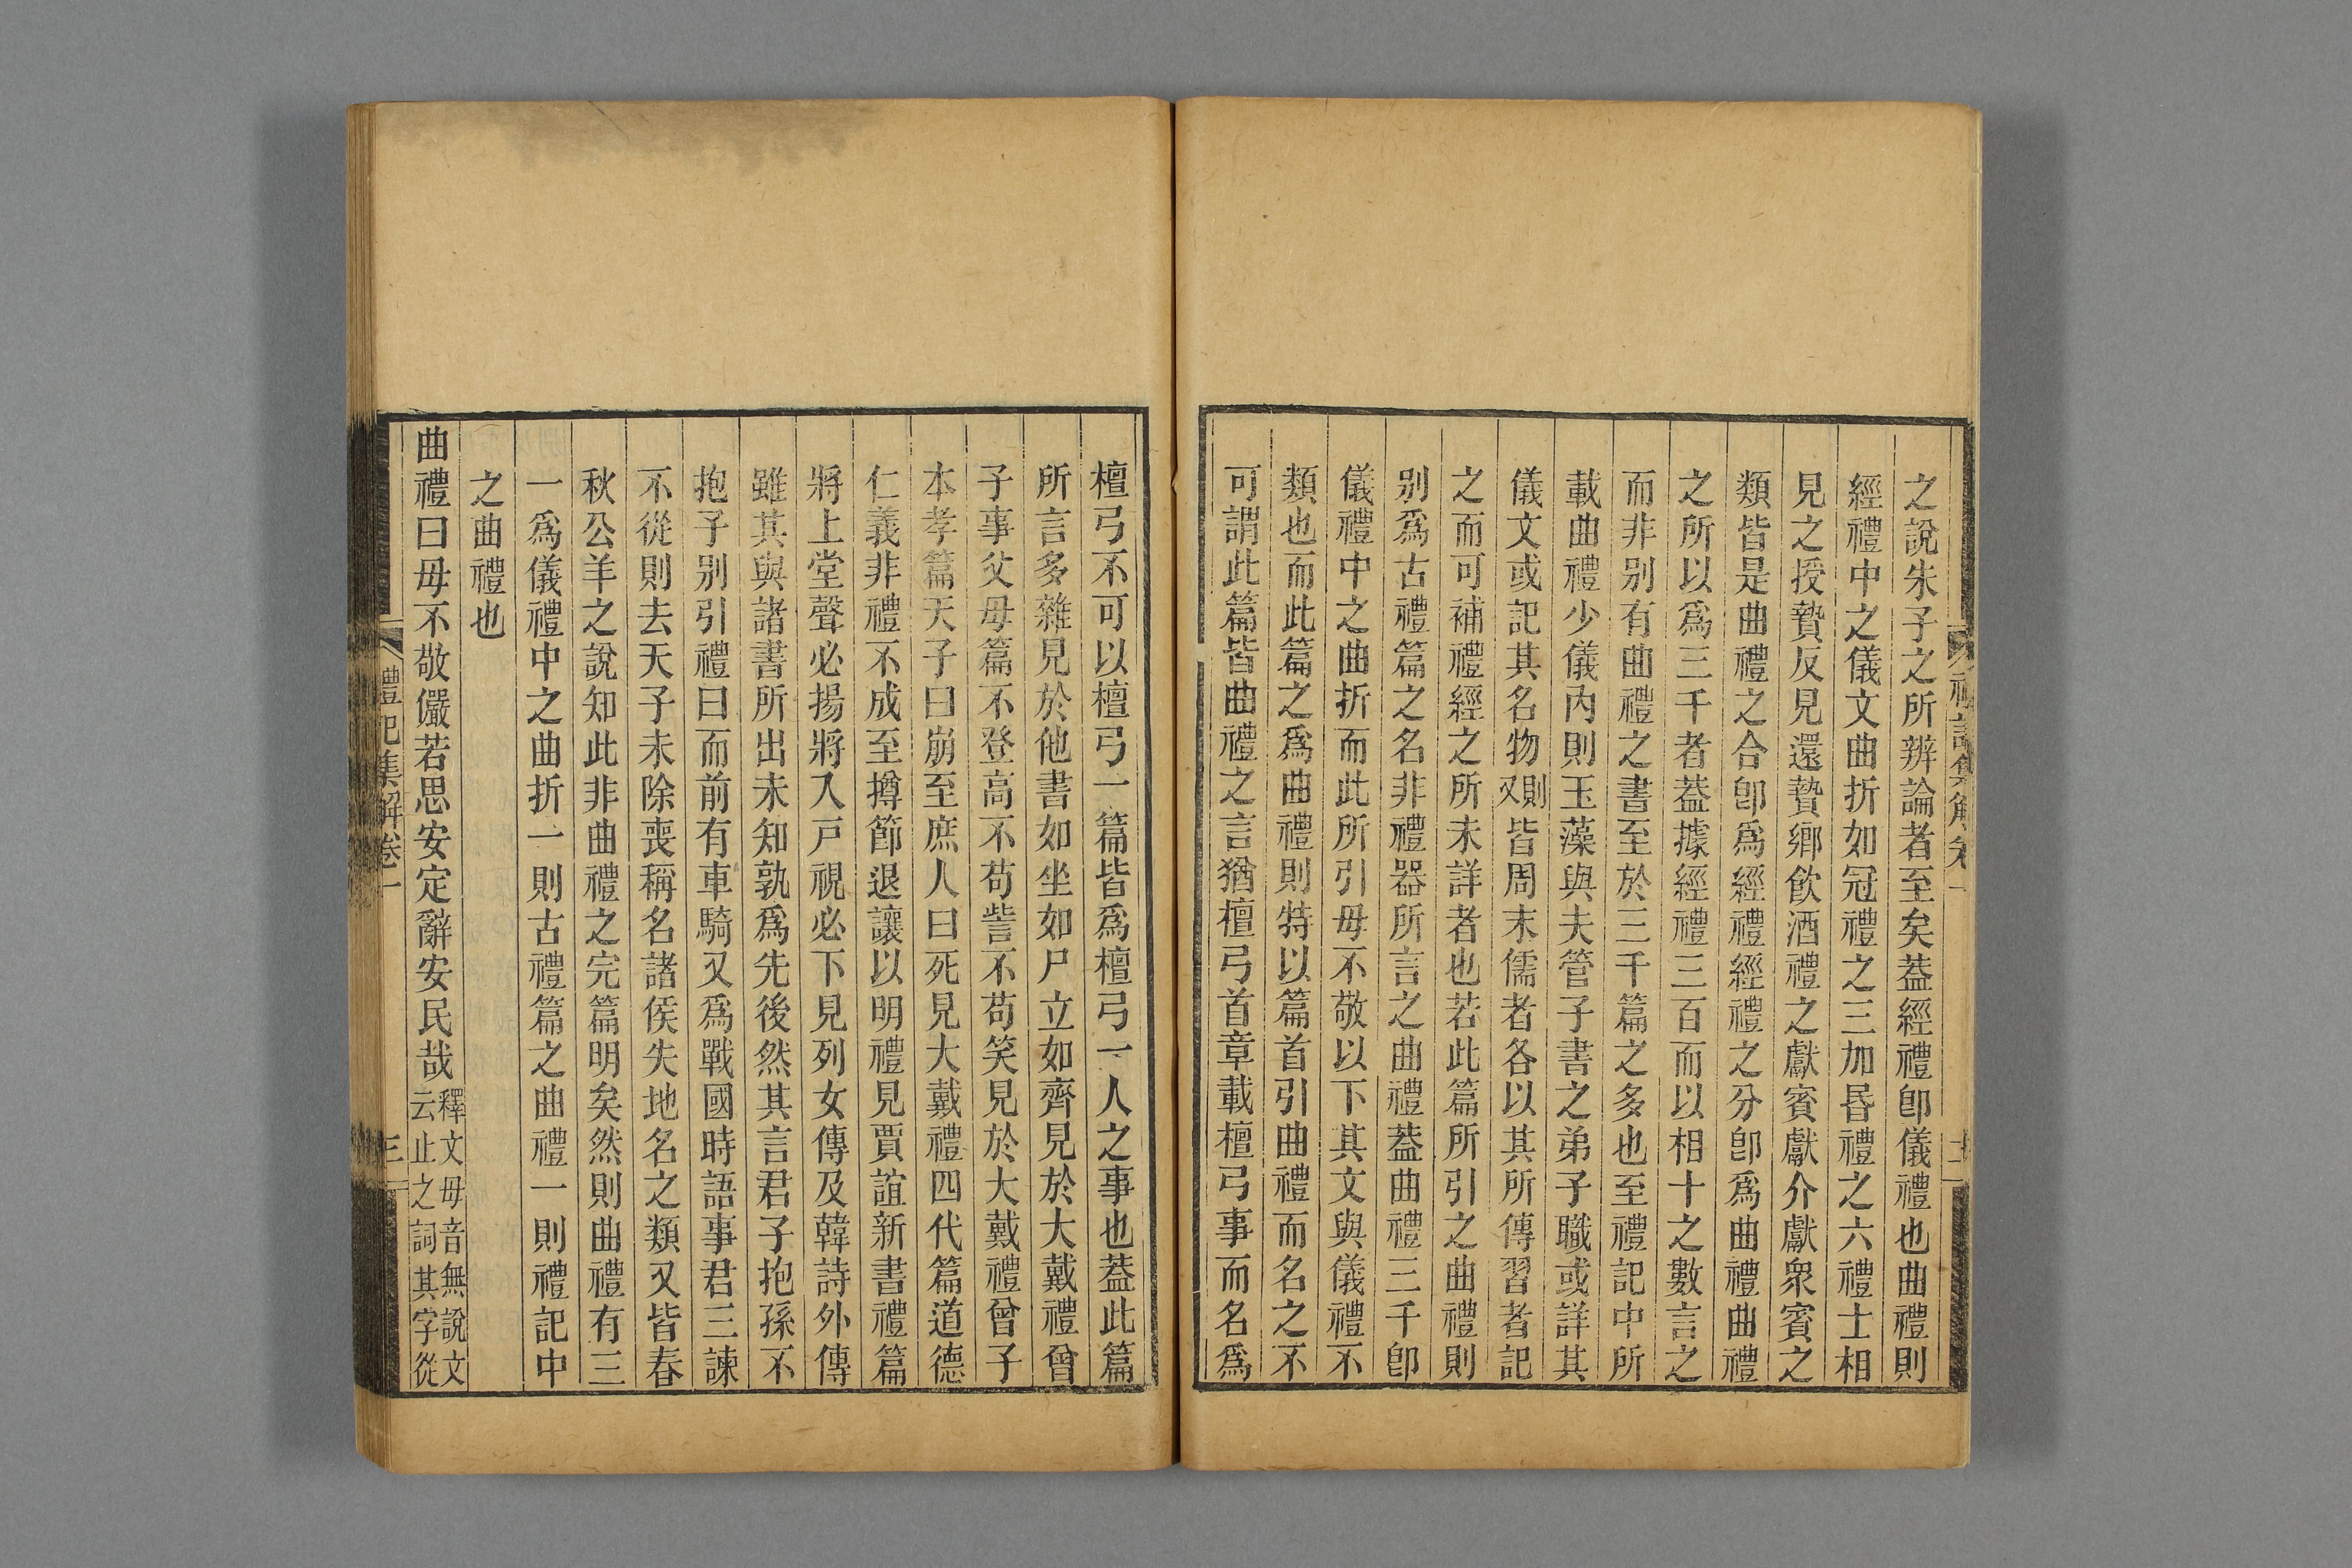 之說朱子之所辨論者至矣葢經禮卽儀禮也曲禮則
經禮中之儀文曲折如冠禮之三加昬禮之六禮士相
見之授贄反見還贄鄉飮酒禮之獻賓獻介獻衆賓之
類皆是曲禮之合卽爲經禮經禮之分卽爲曲禮曲禮
之所以爲三千者葢據經禮三百而以相十之數言之
而非别有曲禮之書至於三千篇之多也至禮記中所
載曲禮少儀內則玉藻與夫管子書之弟子職或詳其
儀文或記其名物又則皆周末儒者各以其所傳習者記
之而可補禮經之所未詳者也若此篇所引之曲禮則
别爲古禮篇之名非禮器所言之曲禮葢曲禮三千卽
儀禮中之曲折而此所引毋不敬以下其文與儀禮不
類也而此篇之爲曲禮則特以篇首引曲禮而名之不
可謂此篇皆曲禮之言猶檀弓首章載檀弓事而名爲
檀弓不可以檀弓一篇皆爲檀弓一人之事也葢此篇
所言多雜見於他書如坐如尸立如齊見於大戴禮曾
子事父母篇不登高不苟訾不苟笑見於大戴禮曾子
本孝篇天子曰崩至庶人曰死見大戴禮四代篇道德
仁義非禮不成至撙節退讓以明禮見賈誼新書禮篇
將上堂聲必揚將入戶視必下見列女傳及韓詩外傳
雖其與諸書所出未知孰爲先後然其言君子抱孫不
抱子别引禮曰而前有車騎又爲戰國時語事君三諫
不從則去天子未除喪稱名諸侯失地名之類又皆春
秋公羊之說知此非曲禮之完篇明矣然則曲禮有三
一爲儀禮中之曲折一則古禮篇之曲禮一則禮記中
之曲禮也
曲禮曰毋不敬儼若思安定辭安民哉釋文毋音無說文云止之詞其字從
禮記集解卷一
三